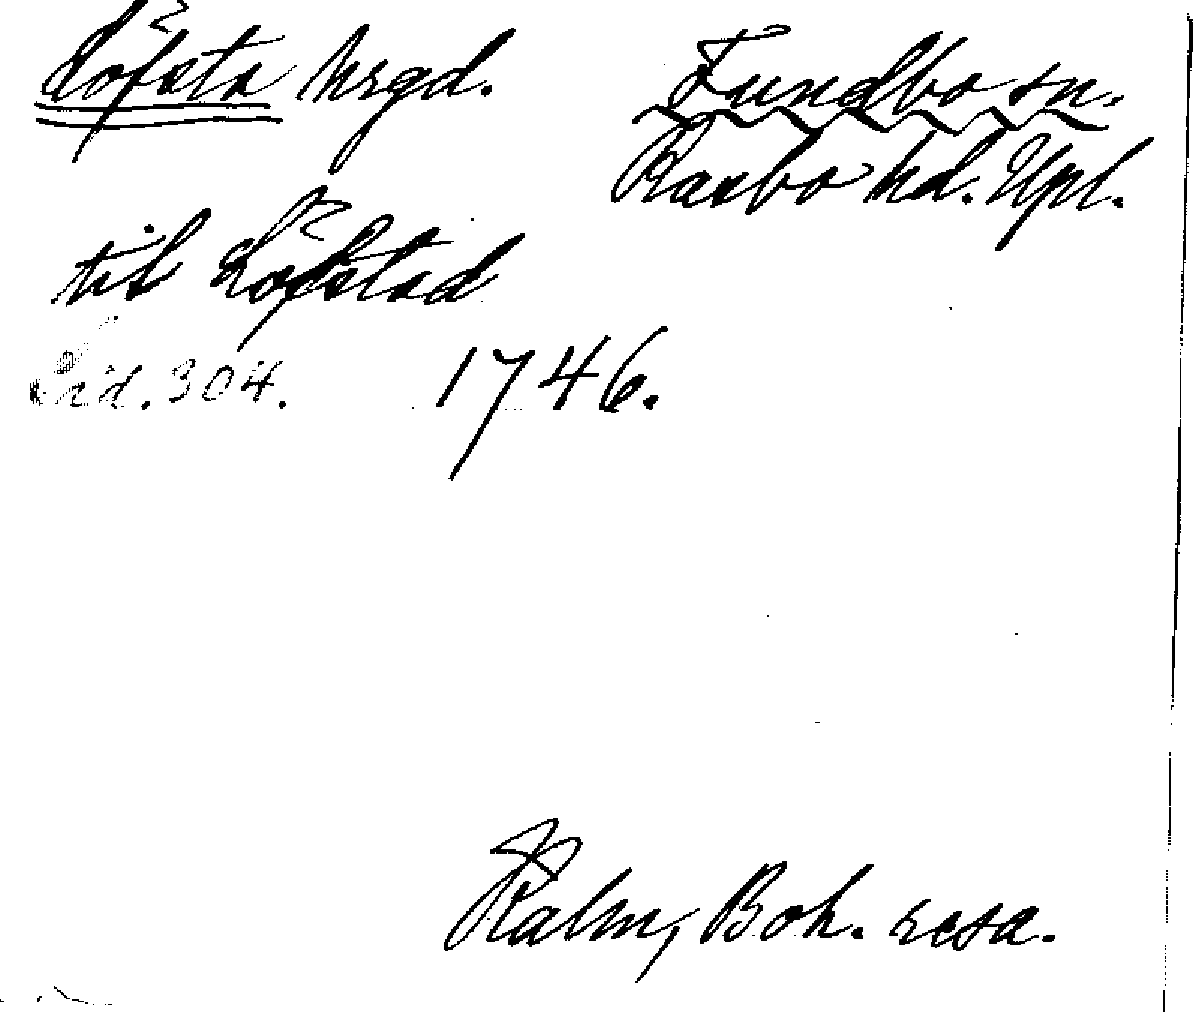 Löfsta hrgd.
Fundbo sn.
Rasbo hd. Upl.
til Löfstad
Sid. 304. 1746.
Kalm, Boh. resa.